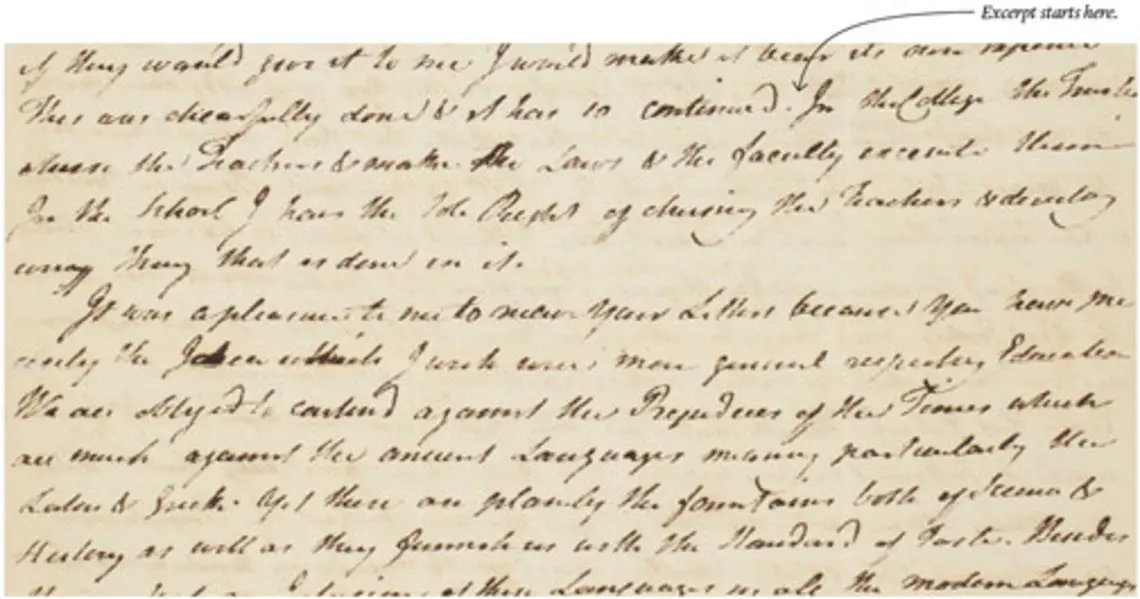 Excerpt starts here.
if they would give it to me I would make it bear its own expence
This was chearfully done & it has so continued. In the College the Trustees
chuse the Teachers & make the Laws & the faculty execute them
In the School I have the sole Right of chusing the Teachers & directing
every thing that is done in it.
It was a pleasure to me to receive your Letters because you have me
only the Ideas which I wish were more general respecting Education
We are obliged to contend against the Prejudices of the Times which
are much against the ancient Languages meaning particularly the
Latin & Greek. Yet these are plainly the fountains both of Science &
History as well as they furnish us with the Standard of Taste. Besides
of these Languages in all the modern Languages